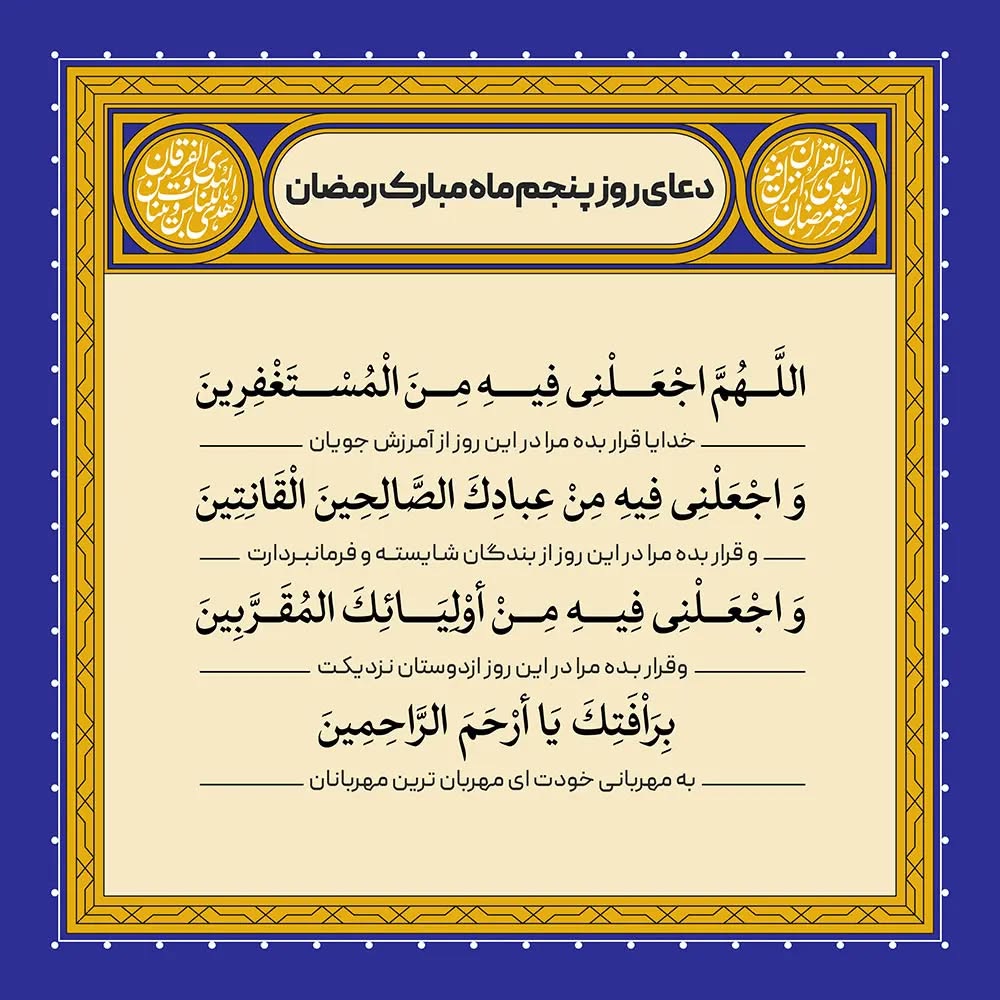 دعای روز پنجم ماه مبارک رمضان
شهر رمضان الذی انزل فیه القرآن
هدی للناس و بینات من الهدی و الفرقان
اللَّهُمَّ اجْعَلْنِی فِیهِ مِنَ الْمُسْتَغْفِرِینَ
خدایا قرار بده مرا در این روز از آمرزش جویان
وَ اجْعَلْنِی فِیهِ مِنْ عِبادِكَ الصَّالِحِینَ الْقَانِتِینَ
و قرار بده مرا در این روز از بندگان شایسته و فرمانبردارت
وَ اجْعَلْنِی فِیهِ مِنْ أوْلِیَائِكَ المُقَرَّبِینَ
وقرار بده مرا در این روز ازدوستان نزدیکت
بِرَاْفَتِكَ یَا أرْحَمَ الرَّاحِمِینَ
به مهربانی خودت ای مهربان ترین مهربانان